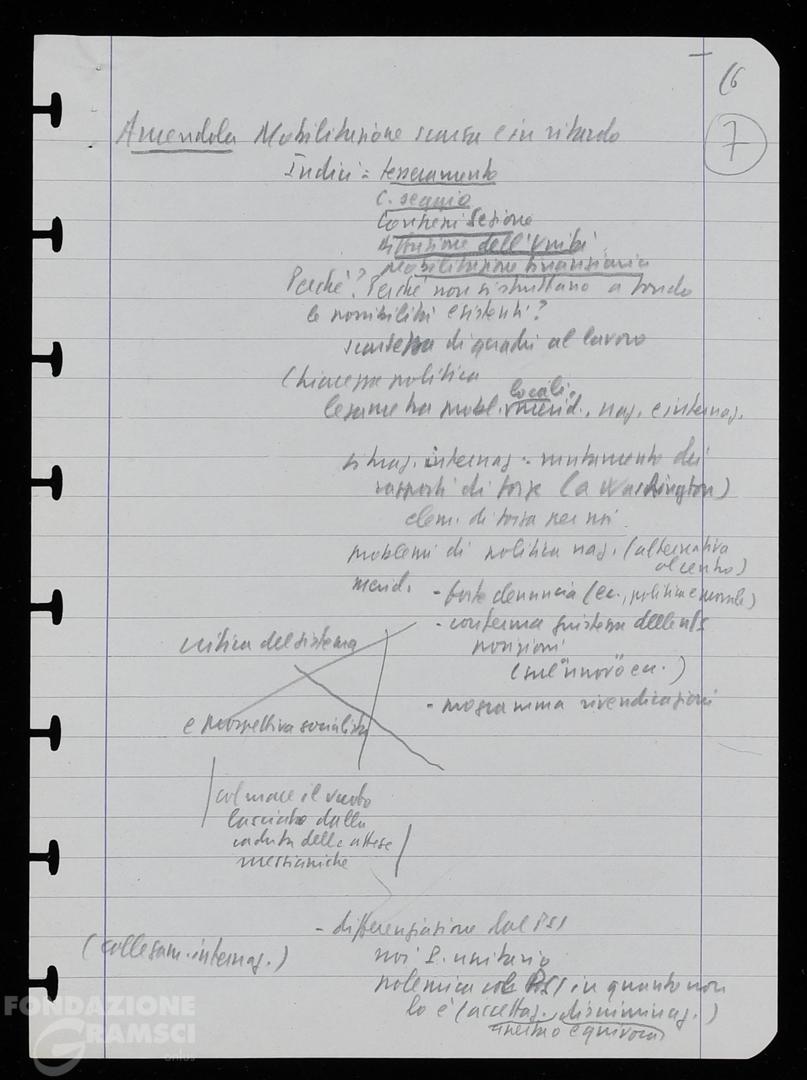 16
7
Amendola Mobilitazione scarsa e in ritardo
Indici = tesseramento
C. seggio
Comizi Sezione
diffusione dell'Unità
Mobilitazione finanziaria
Perché? Perché non si sfruttano a fondo
le possibilità esistenti?
scarsezza di quadri al lavoro
Chiarezza politica
locali,
legame tra probl. merid., naz. e internaz.
situaz. internaz. - mutamento dei
rapporti di forze (a Washington)
elem. di forza per noi
problemi di politica naz. (alternativa
al centro)
merid. - forte denuncia (ec., politica e morale)
- conferma giustezza delle ns
critica del sistema
posizioni
(sul "nuovo" ec.)
- programma rivendicazioni
e prospettiva socialista
colmare il vuoto
lasciato dalla
caduta delle attese
messianiche
- differenziazione dal PSI
(coll. internaz.)
noi P. unitario
polemica col PSI in quanto non
lo è (accettaz. discriminaz.)
equivoca
FONDAZIONE
GRAMSCI
onlus